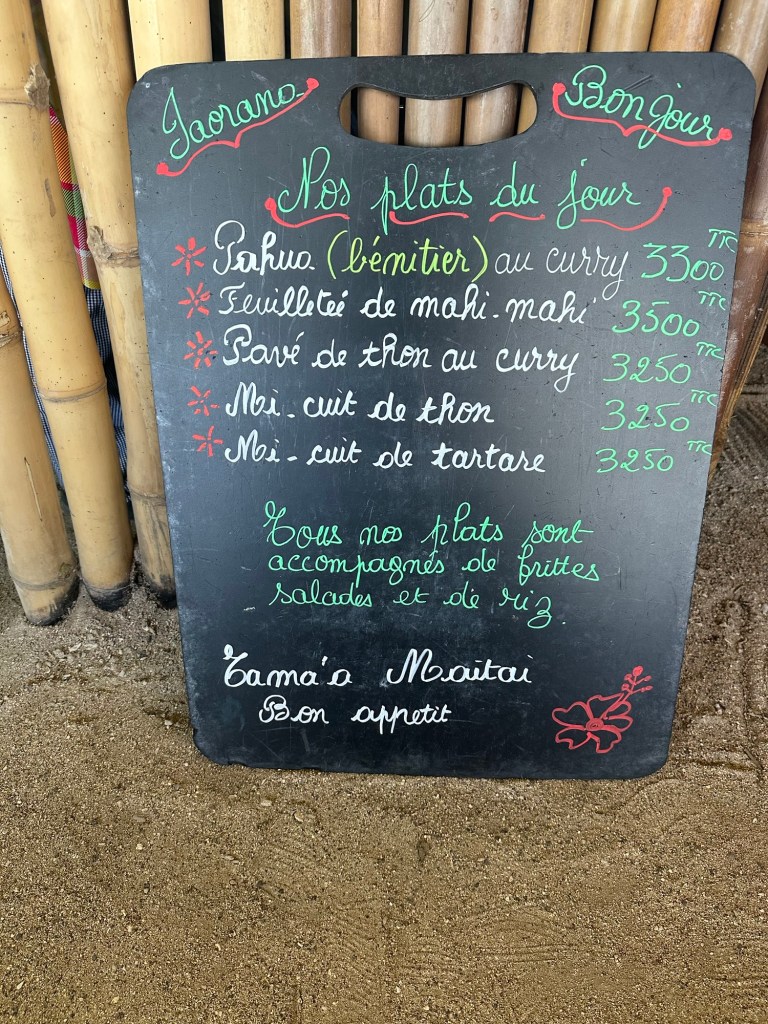 Iaorana Bonjour
Nos plats du jour
Pahua (bénitier) au curry 3300 TTC
Feuilleteé de mahi-mahi 3500 TTC
Pavé de thon au curry 3250 TTC
Mi-cuit de thon 3250 TTC
Mi-cuit de tartare 3250 TTC
Tous nos plats sont
accompagnés de frittes
salades et de riz.
Tama'a Maitai
Bon appetit